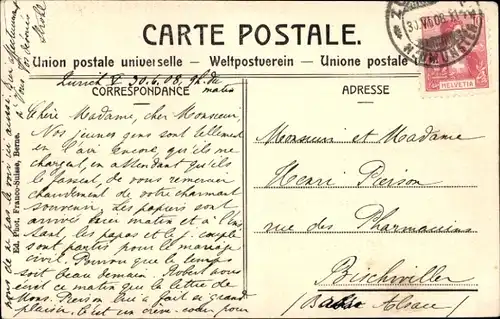 CARTE POSTALE.
Union postale universelle – Weltpostverein – Unione postale
CORRESPONDANCE
ADRESSE
30.VI.08.XI
HELVETIA
Ed. Phot. Franco-Suisse, Berne.
Zurich 30.6.08, 9h. du
matin
Chère Madame, cher Monsieur,
Nos jeunes gens sont tellement
en l'air encore, qu'ils me
chargent, en attendant qu'ils
le fassent, de vous remercier
chaudement de votre charmant
souvenir. Les papiers sont
arrivés hier matin et à l'ins
tant, les papas et le j. couple
sont partis pour le mariage
civil. Pourvu que le temps
soit beau demain. Robert vous
écrit ce matin que la lettre de
Mons. Pierson lui a fait si grand
plaisir. Il est un
pour
nous de ne pas le voir ici aussi.
Monsieur et Madame
Henri Pierson
rue des Pharmaciens
Bischwiller
(Basse Alsace)